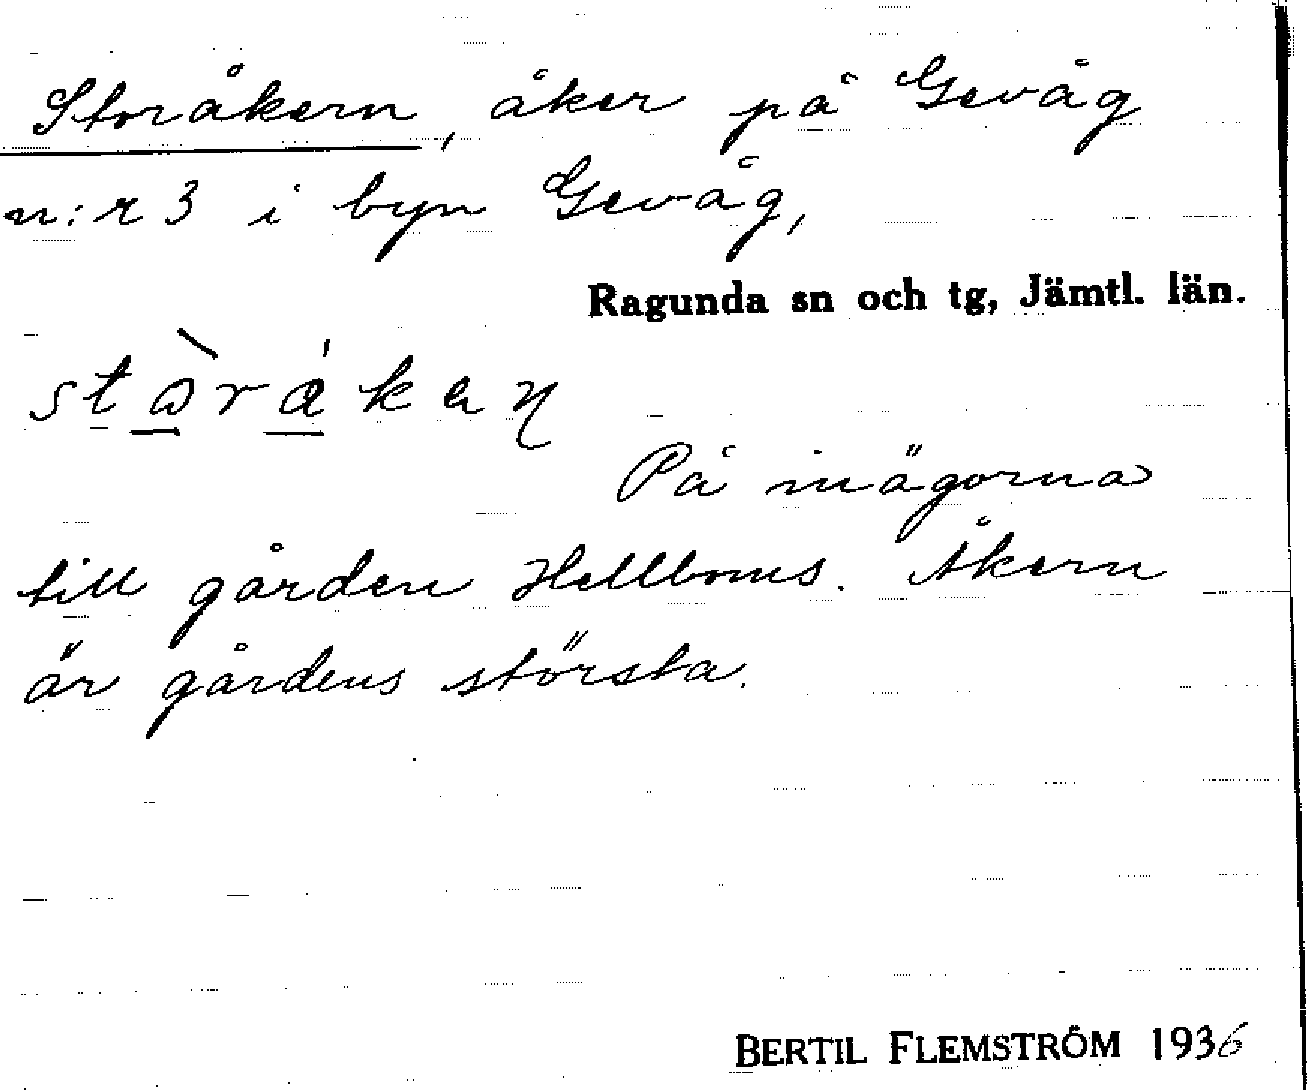 Storåkern, åker på Gevåg
n:r 3 i byn Gevåg,
Ragunda sn och tg, Jämtl. län.
På inägorna
till gården Hellboms. Åkern
är gårdens största.
BERTIL FLEMSTRÖM 1936